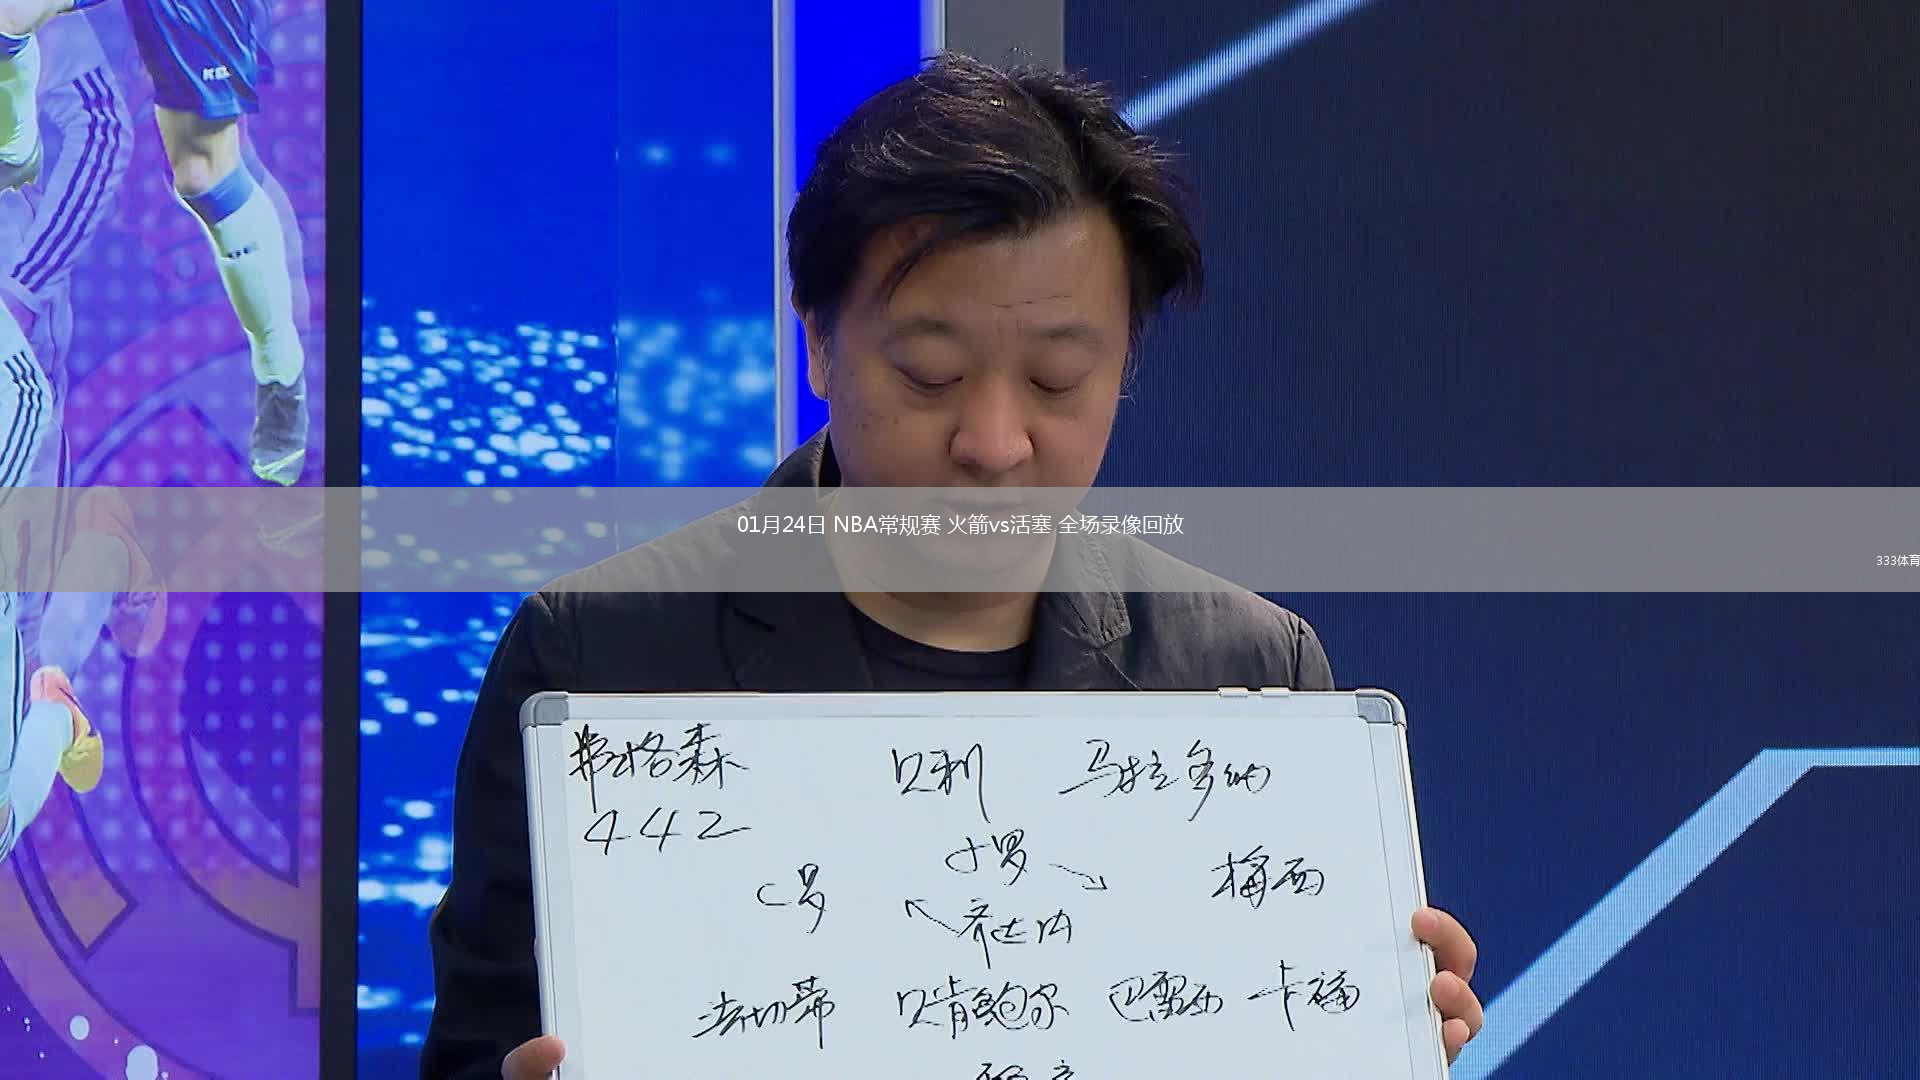 01月24日 NBA常规赛 火箭vs活塞 全场录像回放
333体育
弗格森 贝利 马拉多纳
442
小罗
C罗 梅西
齐达内
法切蒂 贝肯鲍尔 巴雷西 卡福